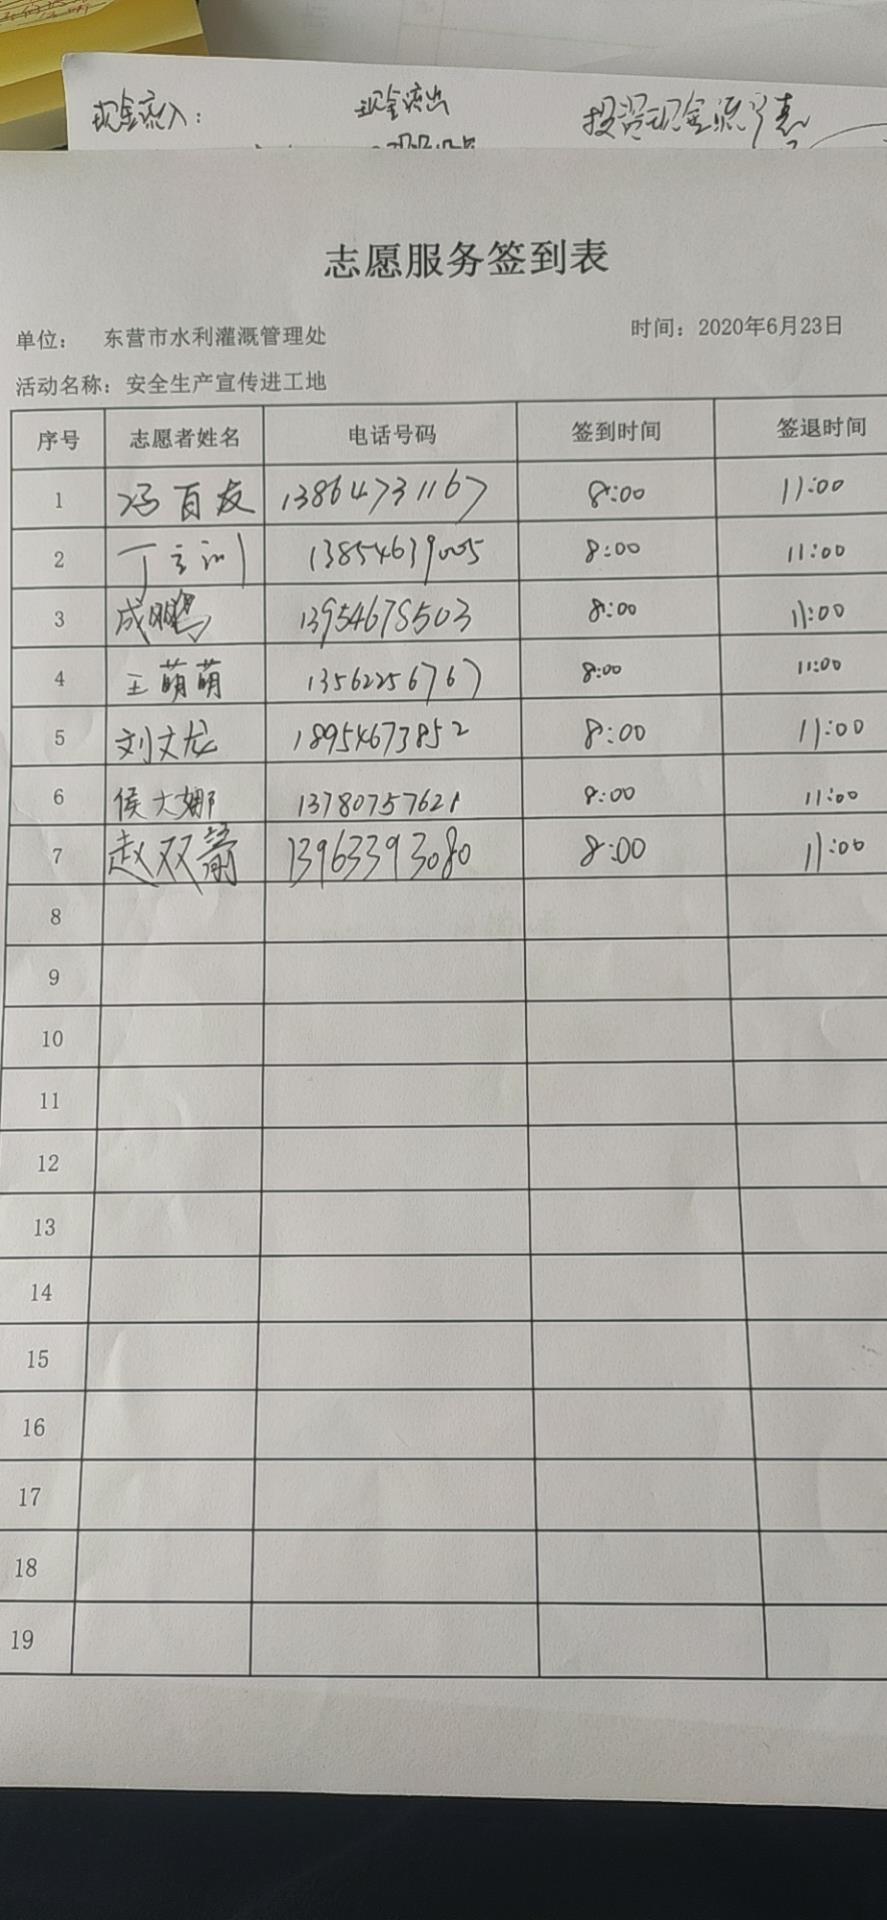 现金流入：
现金流出
投资现金流
志愿服务签到表
单位： 东营市水利灌溉管理处 时间：2020年6月23日
活动名称：安全生产宣传进工地
序号 志愿者姓名 电话号码 签到时间 签退时间
1 冯百友 13864731167 8:00 11:00
2 丁 13854639005 8:00 11:00
3 成鹏 13954675503 8:00 11:00
4 王萌萌 13562256767 8:00 11:00
5 刘文龙 18954673852 8:00 11:00
6 侯大娜 13780757621 8:00 11:00
7 赵双 13963393080 8:00 11:00
8
9
10
11
12
13
14
15
16
17
18
19